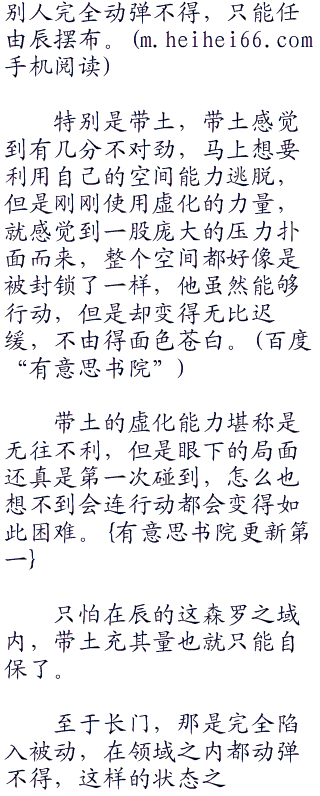 别人完全动弹不得，只能任
由辰摆布。(m.heihei66.com
手机阅读)
特别是带土，带土感觉
到有几分不对劲，马上想要
利用自己的空间能力逃脱，
但是刚刚使用虚化的力量，
就感觉到一股庞大的压力扑
面而来，整个空间都好像是
被封锁了一样，他虽然能够
行动，但是却变得无比迟
缓，不由得面色苍白。(百度
“有意思书院”)
带土的虚化能力堪称是
无往不利，但是眼下的局面
还真是第一次碰到，怎么也
想不到会连行动都会变得如
此困难。{有意思书院更新第
一}
只怕在辰的这森罗之域
内，带土充其量也就只能自
保了。
至于长门，那是完全陷
入被动，在领域之内都动弹
不得，这样的状态之